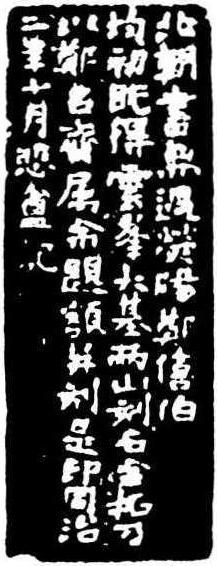 北朝書無過滎陽鄭僖伯
均初既得雲峯大基兩山刻石全拓乃
以鄭名齋属余題額并刻是印同治
二年十月悲盦記